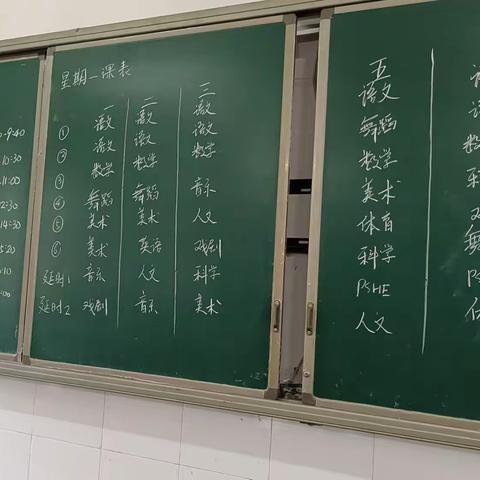 0-9:40
10:30
11:00
2:30
14:30
5:20
:10
:00
星期一课表
一 二 三
语文 语文 语文
① 语文 语文 语文
② 数学 数学 数学
③
④ 舞蹈 舞蹈 音乐
⑤ 美术 美术 人文
⑥ 美术 英语 戏剧
延时1 音乐 人文 科学
延时2 戏剧 音乐 美术
五
语文
舞蹈
数学
美术
体育
科学
PSHE
人文